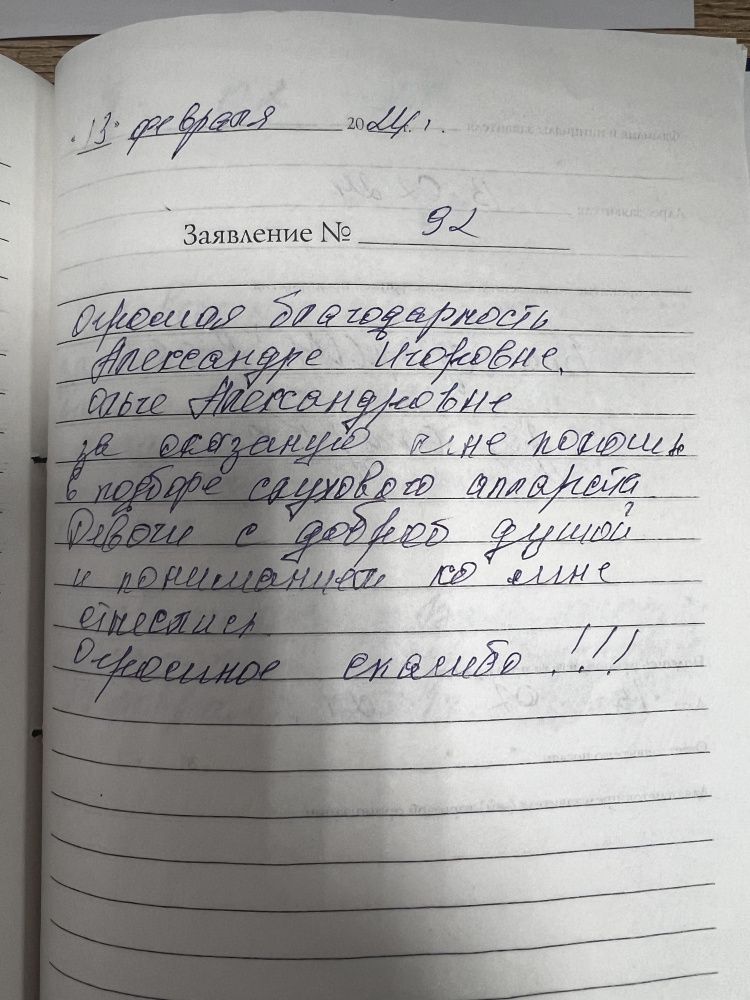 "13" февраля 2024г.
Заявление № 92
Огромная благодарность
Александре Игоровне,
Ольге Александровне
за оказаную мне помощь
в подборе слухового аппарата
Девочи с доброй душой
и пониманием ко мне
отнеслись
Огромное спасибо !!!